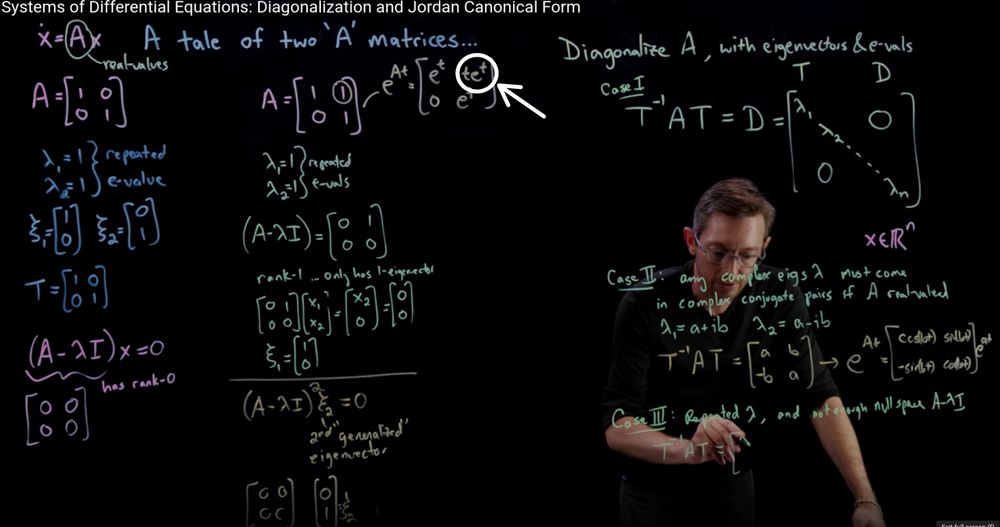 Systems of Differential Equations: Diagonalization and Jordan Canonical Form
ẋ=Ax A tale of two 'A' matrices...
real-values
A=[1 0
0 1]
λ₁=1 } repeated
λ₂=1 } e-value
ξ₁=[1
0] ξ₂=[0
1]
T=[1 0
0 1]
(A-λI)x=0
has rank-0
[0 0
0 0]
A=[1 1
0 1]
e^At=[e^t te^t
0 e^t]
λ₁=1 } repeated
λ₂=1 } e-vals
(A-λI)=[0 1
0 0]
rank-1 ... only has 1-eigenvector
[0 1
0 0][x₁
x₂]=[x₂
0]=[0
0]
ξ₁=[1
0]
(A-λI)²ξ₂=0
2nd "generalized"
eigenvector
[0 0
0 0] [0
1]=ξ₂
Diagonalize A, with eigenvectors & e-vals
T D
Case I
T⁻¹AT=D=[λ₁ 0
λ₂
0 λₙ]
x∈ℝⁿ
Case II: any complex eigs λ must come
in complex conjugate pairs if A real-valued
λ₁=a+ib λ₂=a-ib
T⁻¹AT=[a b
-b a] → e^At=[cos(bt) sin(bt)
-sin(bt) cos(bt)]e^at
Case III: Repeated λ, and not enough null space A-λI
T⁻¹AT=[